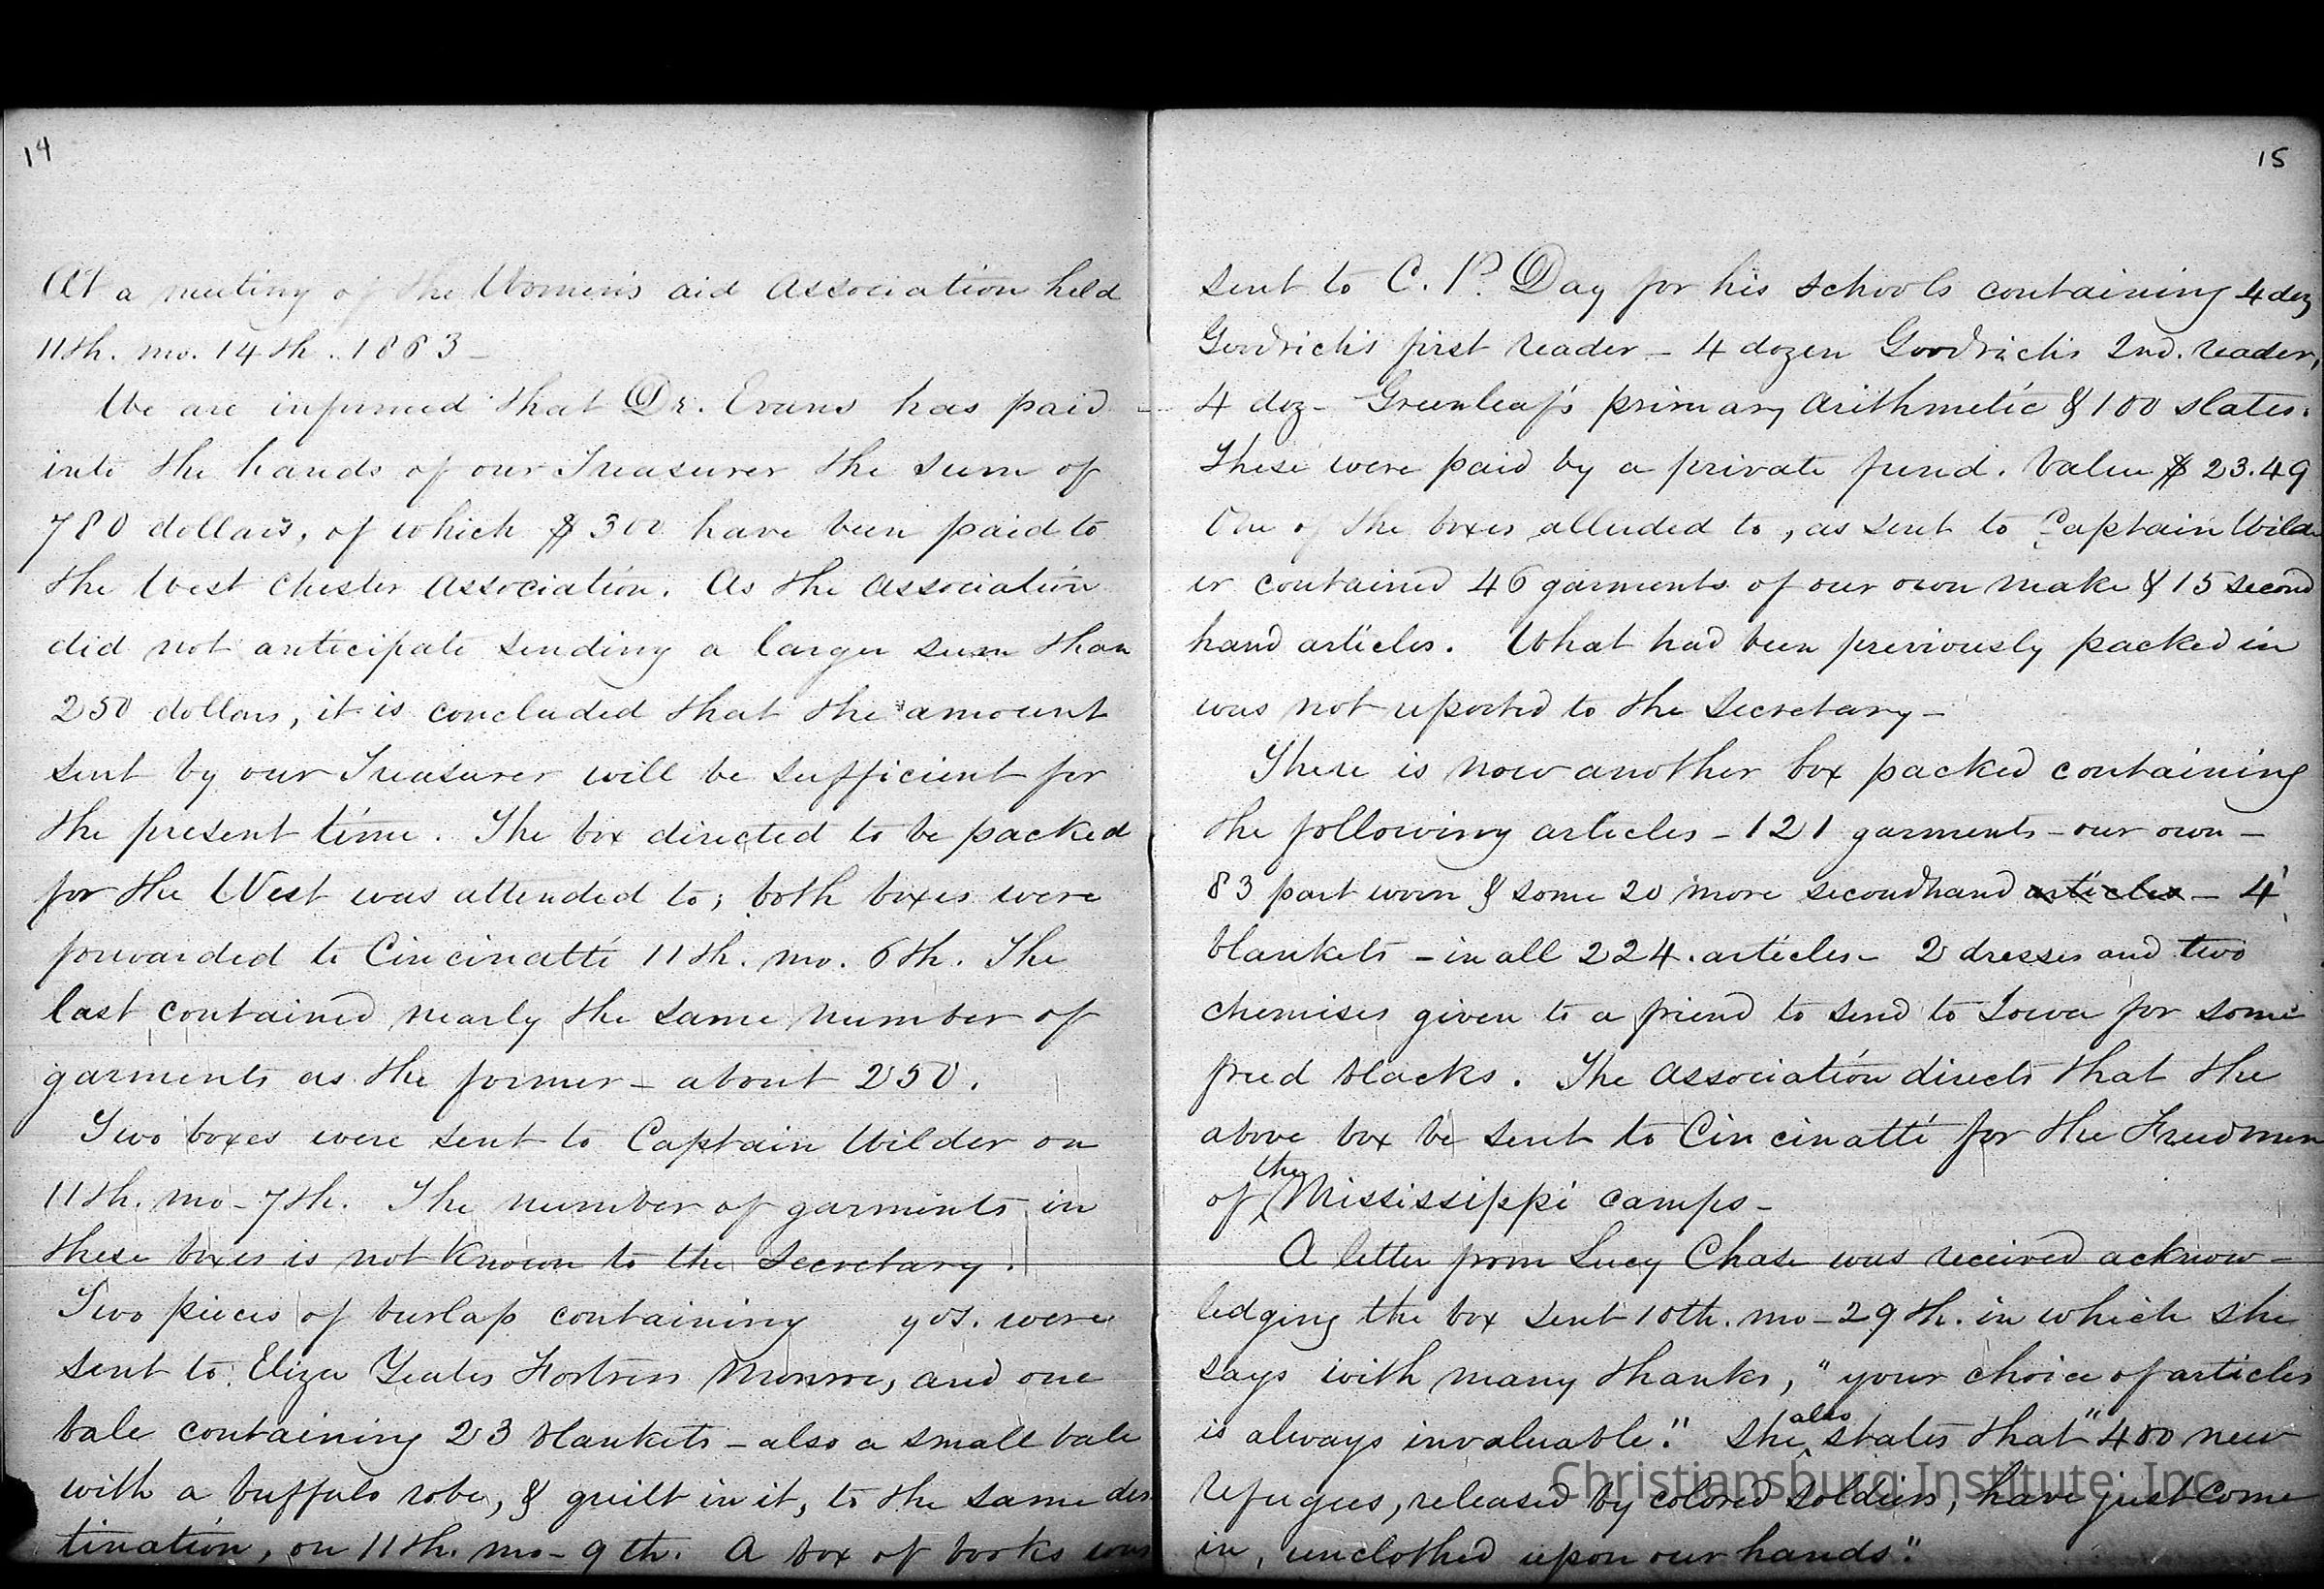 14
At a meeting of the Women's aid Association held
11th. mo. 14th. 1863 -
We are informed that Dr. Evans has paid -
into the hands of our Treasurer the sum of
780 dollars, of which $300 have been paid to
the West Chester Association. As the Association
did not anticipate sending a larger sum than
250 dollars, it is concluded that the amount
sent by our Treasurer will be sufficient for
the present time. The box directed to be packed
for the West was attended to; both boxes were
forwarded to Cincinatti 11th. mo. 6th. The
last contained nearly the same number of
garments as the former - about 250.
Two boxes were sent to Captain Wilder on
11th. mo - 7th. The number of garments in
these boxes is not known to the Secretary.
Two pieces of burlap containing yds. were
sent to Eliza Yeates Fortress Monroe, and one
bale containing 23 blankets - also a small bale
with a buffalo robe, & quilt in it, to the same des
tination, on 11th. mo - 9th. A box of books was
15
sent to C. P. Day for his schools containing 4 doz
Goodrich's first reader - 4 dozen Goodrich's 2nd. reader,
4 doz - Greenleaf's primary Arithmetic & 100 slates.
These were paid by a private fund. Value $23.49
One of the boxes alluded to, as sent to Captain Wild
er contained 46 garments of our own make & 15 second
hand articles. What had been previously packed in
was not reported to the Secretary -
There is now another box packed containing
the following articles - 121 garments - our own -
83 part worn & some 20 more secondhand articles - 4
blankets - in all 224. articles - 2 dresses and two
chemises given to a friend to send to Iowa for some
freed blacks. The Association directs that the
above box be sent to Cincinatti for the Freedmen
of the Mississippi camps -
A letter from Lucy Chase was received acknow -
ledging the box sent 10th. mo - 29th. in which she
says with many thanks, "your choice of articles
is always invaluable." She also states that "400 new
refugees, released by colored soldiers, have just come
in, unclothed upon our hands".
Christiansburg Institute, Inc.